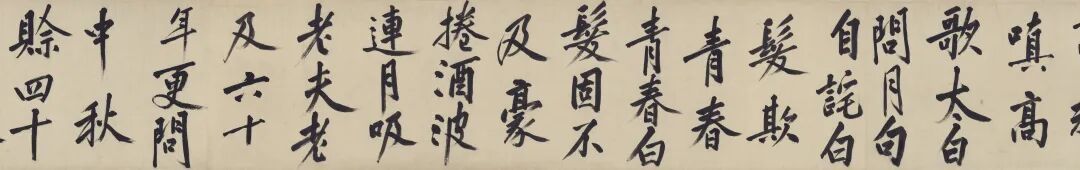 嗔高
歌太白
問月句
自詫白
髮欺
青春
青春白
髮固不
及豪
捲酒波
連月吸
老夫老
及六十
年更問
中秋
賒四十